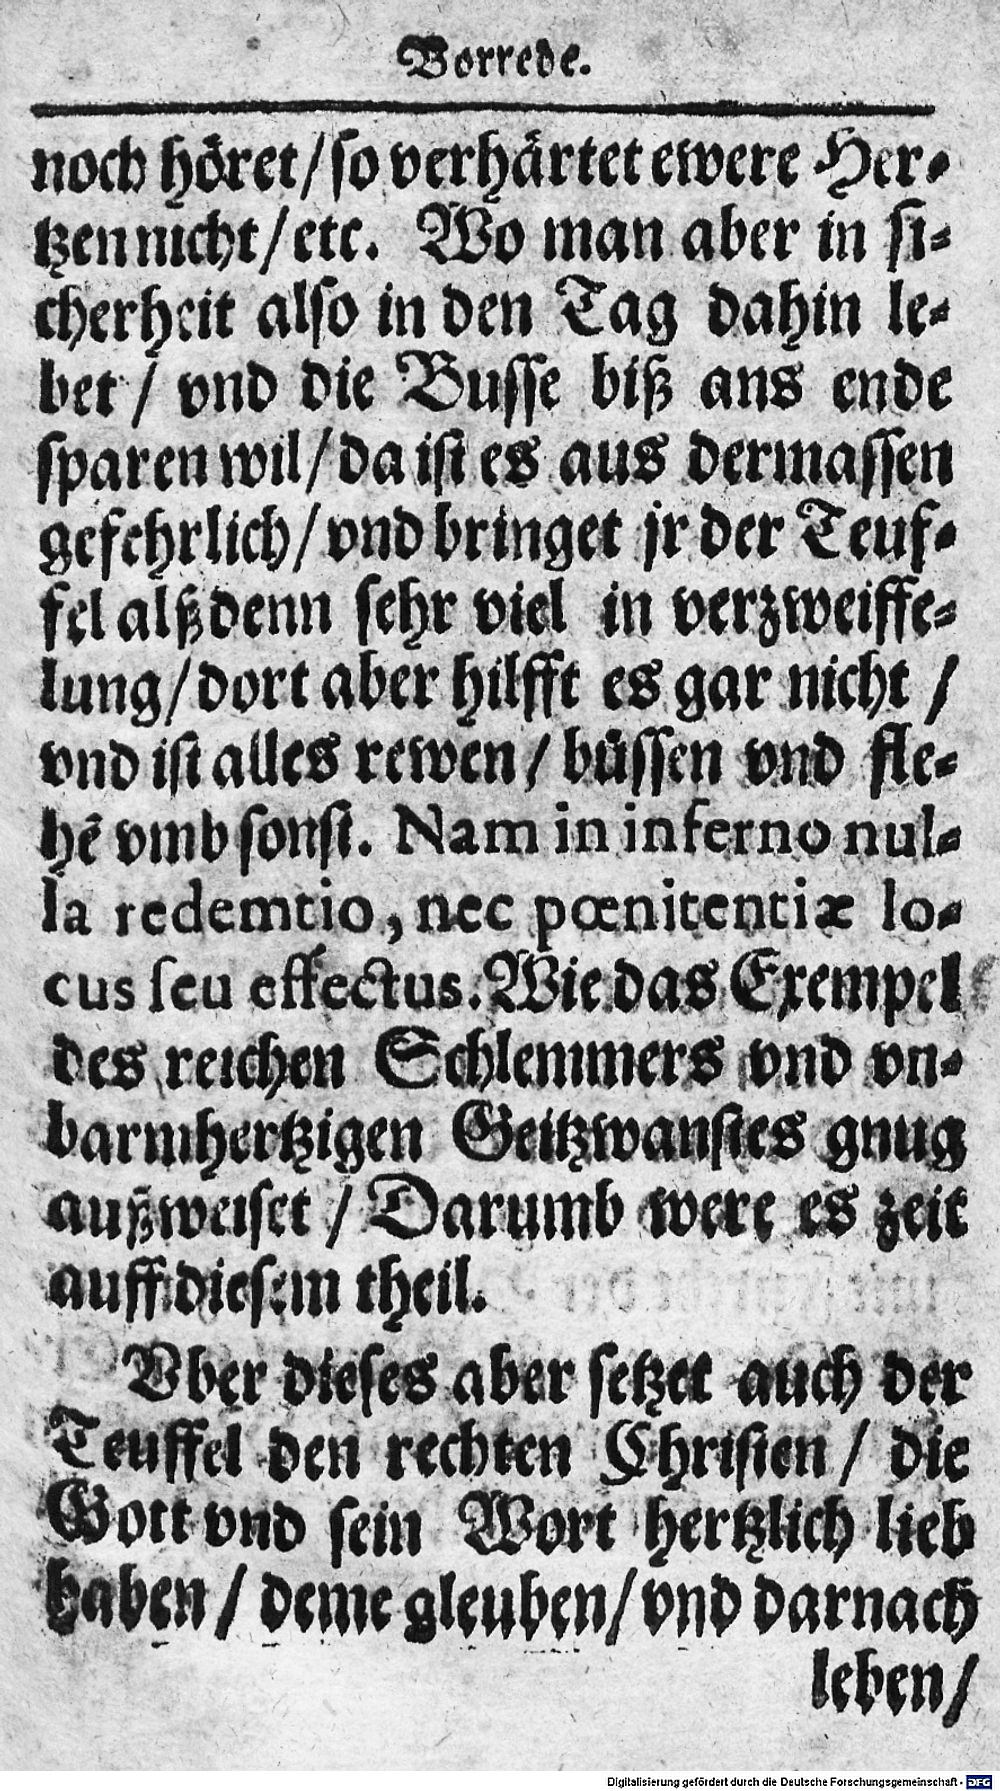 Vorrede.
noch höret/ so verhärtet ewere Her-
tzen nicht/ etc. Wo man aber in si-
cherheit also in den Tag dahin le-
bet/ vnd die Busse biß ans ende
sparen wil/ da ist es aus dermassen
gefehrlich/ vnd bringet jr der Teuf-
fel alßdenn sehr viel in verzweiffe-
lung/ dort aber hilfft es gar nicht /
vnd ist alles rewen/ büssen vnd fle-
hē vmb sonst. Nam in inferno nul-
la redemtio, nec pœnitentiæ lo-
cus seu effectus. Wie das Exempel
des reichen Schlemmers vnd vn-
barmhertzigen Geitzwanstes gnug
außweiset / Darumb were es zeit
auff diesem theil.
Vber dieses aber setzet auch der
Teuffel den rechten Christen / die
Gott vnd sein Wort hertzlich lieb
haben/ deme gleuben/ vnd darnach
leben/
Digitalisierung gefördert durch die Deutsche Forschungsgemeinschaft - DFG